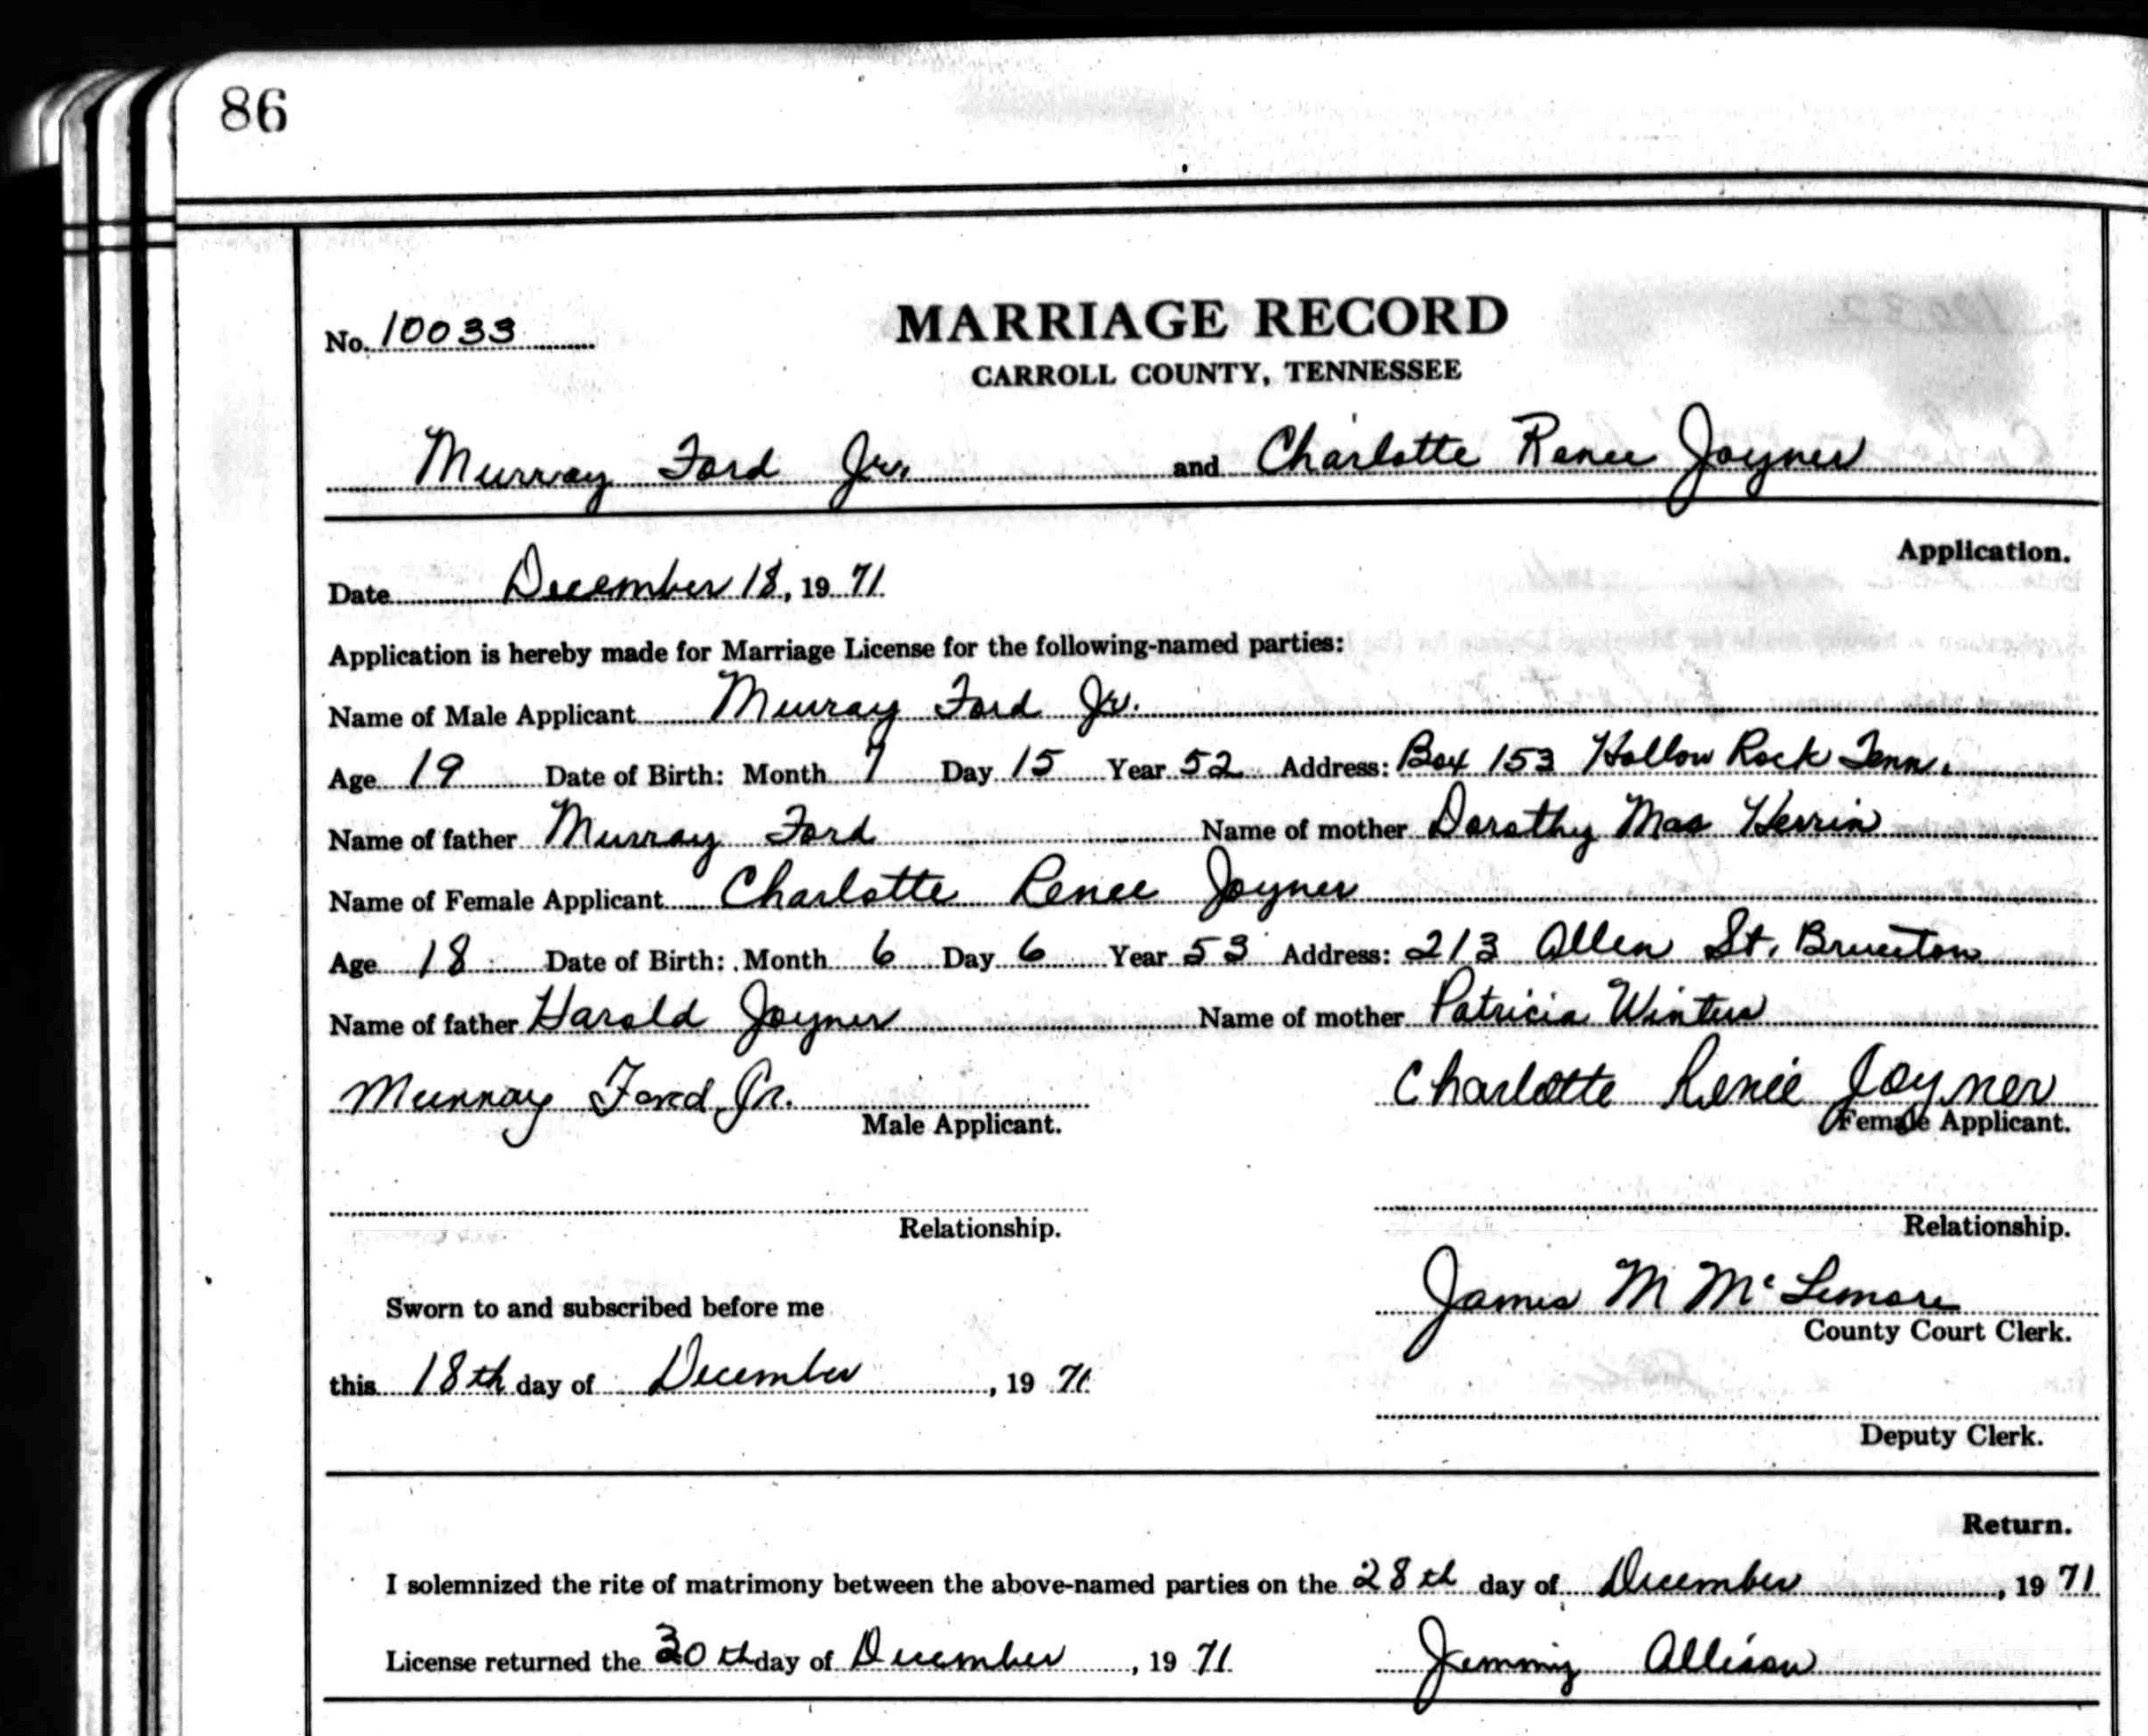 86
No. 10033
MARRIAGE RECORD
CARROLL COUNTY, TENNESSEE
Murray Ford Jr. and Charlotte Renee Joyner
Application.
Date December 18, 19 71
Application is hereby made for Marriage License for the following-named parties:
Name of Male Applicant Murray Ford Jr.
Age 19 Date of Birth: Month 7 Day 15 Year 52 Address: Box 153 Hollow Rock Tenn.
Name of father Murray Ford Name of mother Dorothy Mae Herrin
Name of Female Applicant Charlotte Renee Joyner
Age 18 Date of Birth: Month 6 Day 6 Year 53 Address: 213 Allen St. Bruceton
Name of father Harold Joyner Name of mother Patricia Winters
Murray Ford Jr. Charlotte Renee Joyner
Male Applicant. Female Applicant.
Relationship. Relationship.
James M McLemore
Sworn to and subscribed before me
County Court Clerk.
this 18th day of December, 19 71
Deputy Clerk.
Return.
I solemnized the rite of matrimony between the above-named parties on the 28th day of December, 19 71
License returned the 30th day of December, 19 71. Jimmy Allison